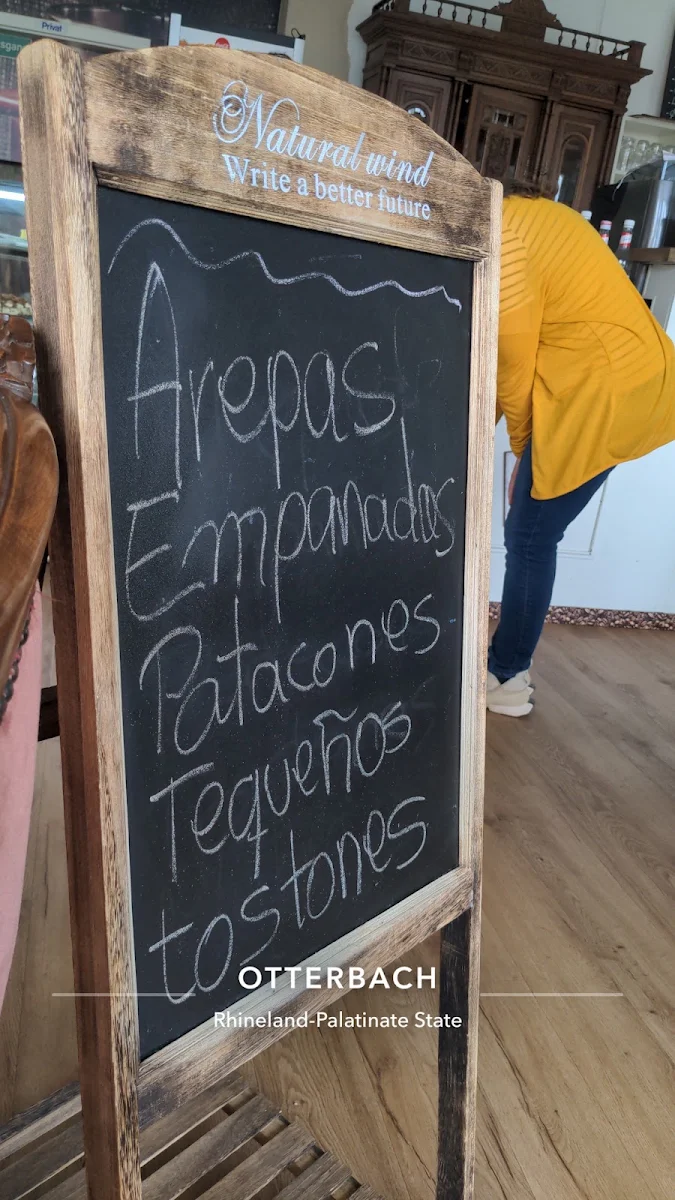 Privat
Natural wind
Write a better future
Arepas,
Empanadas
Patacones
Tequeños
tostones
OTTERBACH
Rhineland-Palatinate State